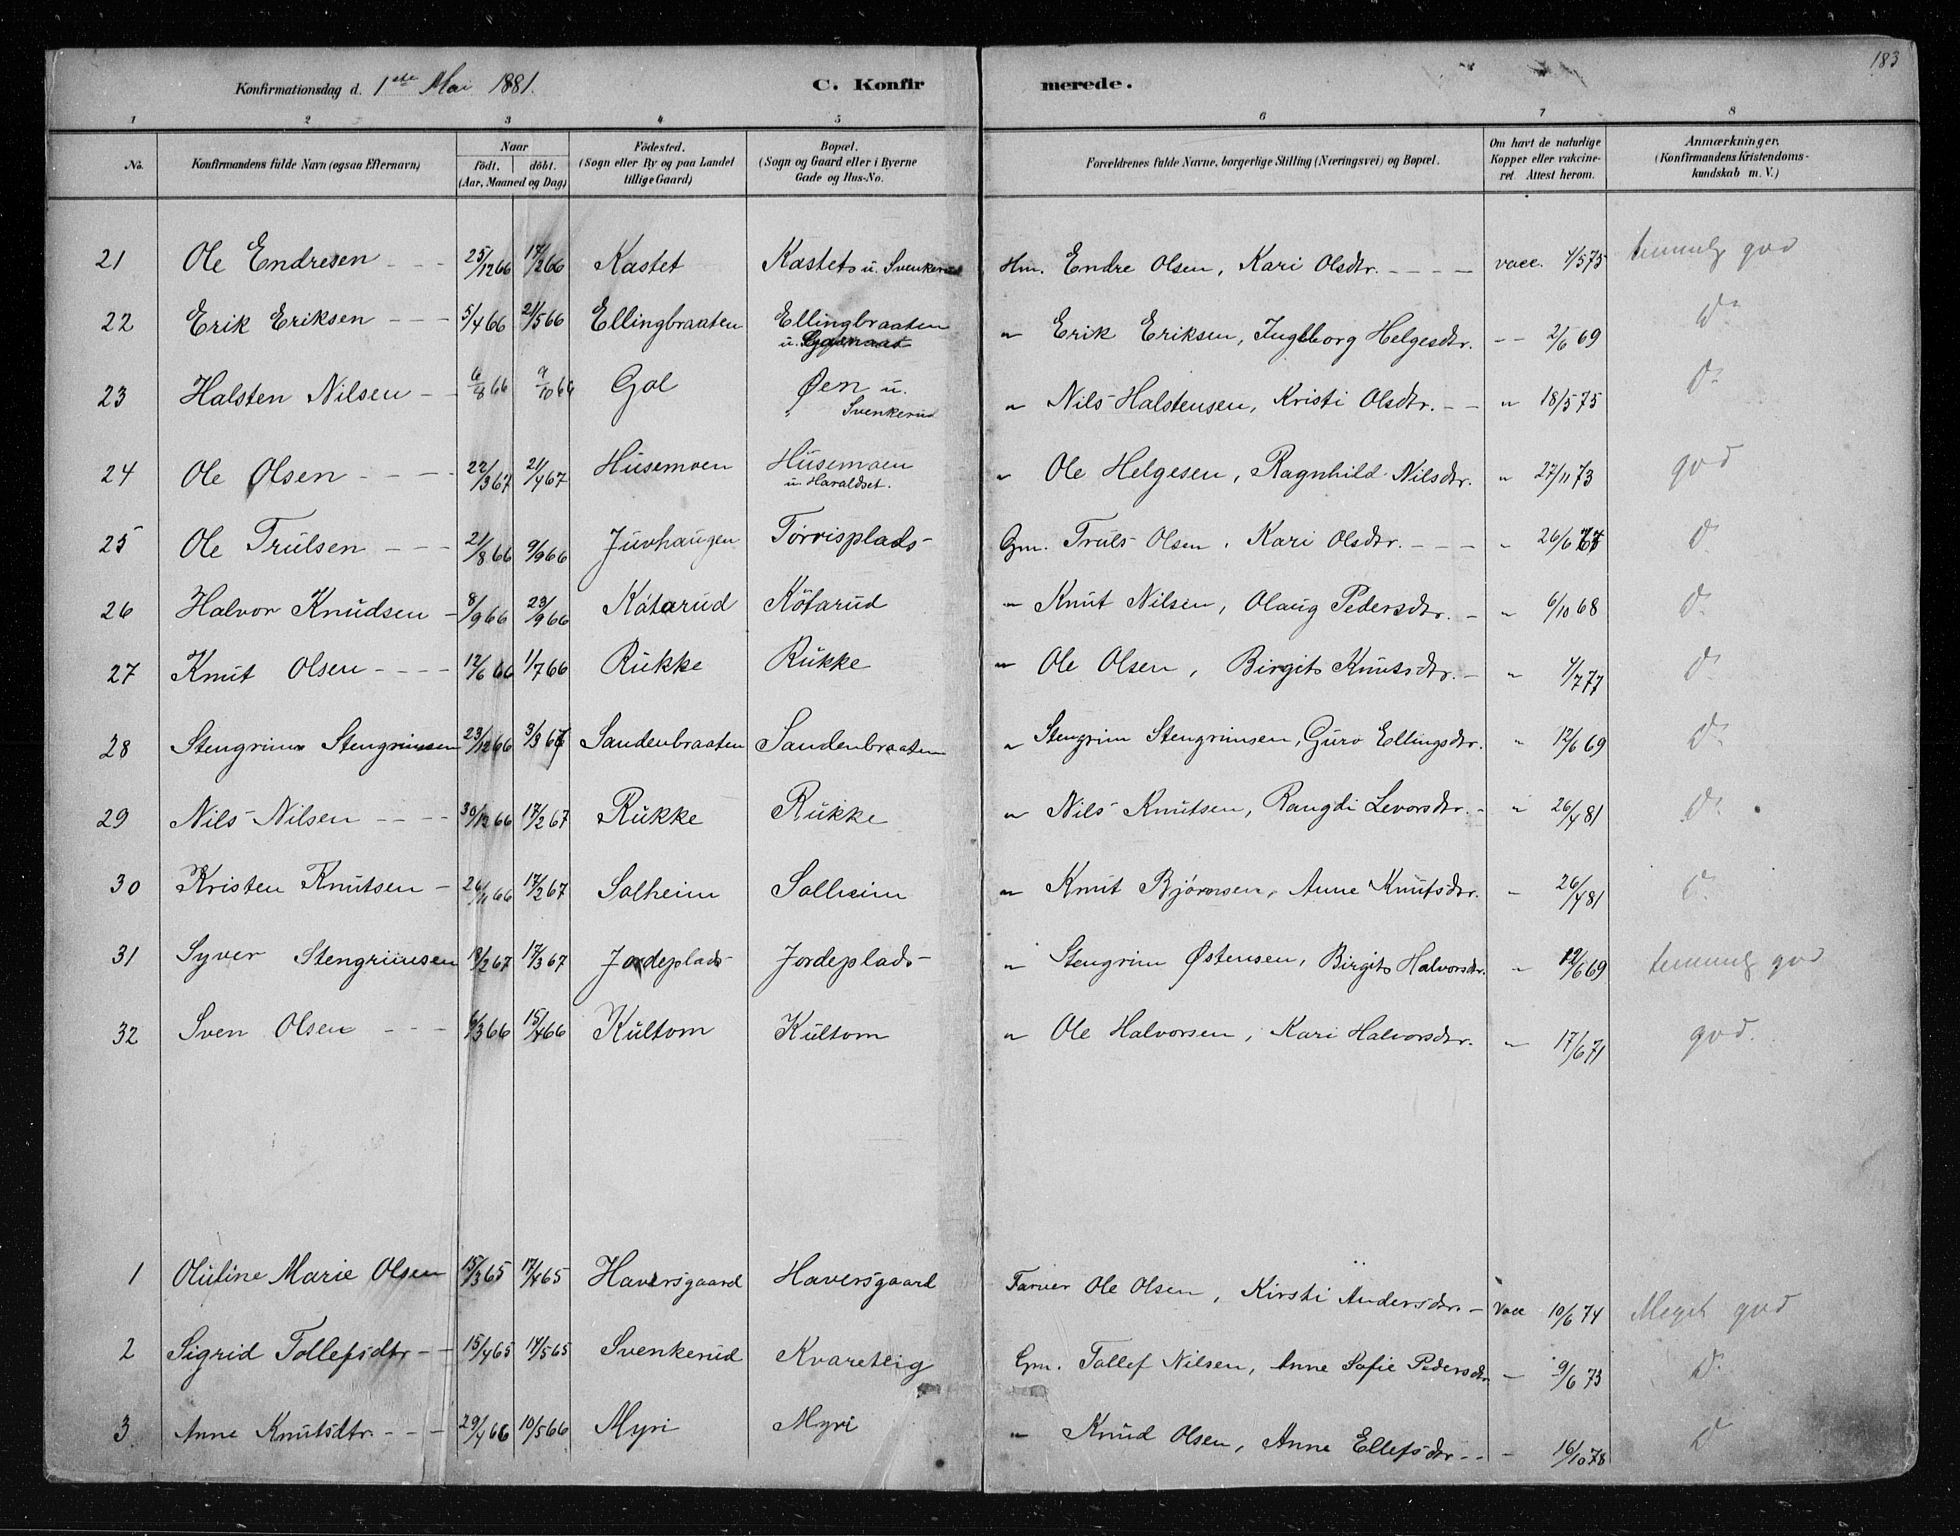 183
Konfirmationsdag d. 1ste Mai 1881. C. Konfirmerede.
1 2 3 4 5 6 7 8
No. Konfirmandens fulde Navn (ogsaa Efternavn) Naar født. døbt. (Aar, Maaned og Dag) Födested. (Sogn eller By og paa Landet tillige Gaard) Bopæl. (Sogn og Gaard eller i Byerne Gade og Hus-No. Forældrenes fulde Navne, borgerlige Stilling (Næringsvei) og Bopæl. Om havt de naturlige Kopper eller vakcineret. Attest herom. Anmærkninger. (Konfirmandens Kristendomskundskab m. V.)
21 Ole Endresen - - - 25/12 66 17/2 66 Kastet Kastet u. Svenkerud Hm. Endre Olsen, Kari Olsdtr. - - - - vacc. 4/5 75 temmelg god
22 Erik Eriksen - - - 5/4 66 21/5 66 Ellingbraaten Ellingbraaten u. " Erik Eriksen, Ingeborg Helgesdtr. - - 2/6 69 do
23 Halsten Nilsen - - 6/8 66 9/10 66 Gol Øen u. Svenkerud " Nils Halstensen, Kristi Olsdtr. - - " 18/5 75 do
24 Ole Olsen - - - - 22/3 67 21/4 67 Husemoen Husemoen u. Haraldset. " Ole Helgesen, Ragnhild Nilsdtr. " 27/11 73 god
25 Ole Trulsen - - - 21/8 66 9/9 66 Juvhaugen Torrisplads Gm. Truls Olsen, Kari Olsdtr. - - - " 26/6 do
26 Halvor Knudsen - 8/9 66 23/9 66 Kötarud Kötarud " Knut Nilsen, Olaug Pedersdtr. - " 6/10 68 do
27 Knut Olsen - - - - 12/6 66 1/7 66 Rukke Rukke " Ole Olsen, Birgit Knutsdtr. - " 4/7 77 do
28 Stengrim Stengrimsen 23/12 66 3/3 67 Sandenbraaten Sandenbraaten " Stengrim Stengrimsen, Guro Ellingsdtr. " 12/6 69 do
29 Nils Nilsen - - - - 30/12 66 17/2 67 Rukke Rukke " Nils Knutsen, Rangdi Levorsdtr. - " 26/4 81 do
30 Kristen Knutsen - 26/11 66 17/2 67 Solheim Solheim " Knut Bjørnsen, Anne Knutsdtr. " 26/4 81 do
31 Syver Stengrimsen 18/2 67 17/3 67 Jordeplads Jordeplads " Stengrim Østensen, Birgit Halvorsdtr. " 12/6 69 temmelg god
32 Sven Olsen - - - 6/3 66 15/4 66 Kultom Kultom " Ole Halvorsen, Kari Halvorsdtr. " 17/6 71 god.
1 Oluline Marie Olsen 15/3 65 17/4 65 Haversgaard Haversgaard Farver Ole Olsen, Kirsti Andersdtr. - Vacc 10/6 74 Meget god
2 Sigrid Tollefsdtr - - 15/4 65 17/5 65 Svenkerud Kvareteig Gm. Tollef Nilsen, Anne Sofie Pedersdtr. - 9/6 73 do
3 Anne Knutsdtr. - - - 29/4 66 10/5 66 Myri Myri " Knud Olsen, Anne Ellefsdtr. - - - 16/10 78 do